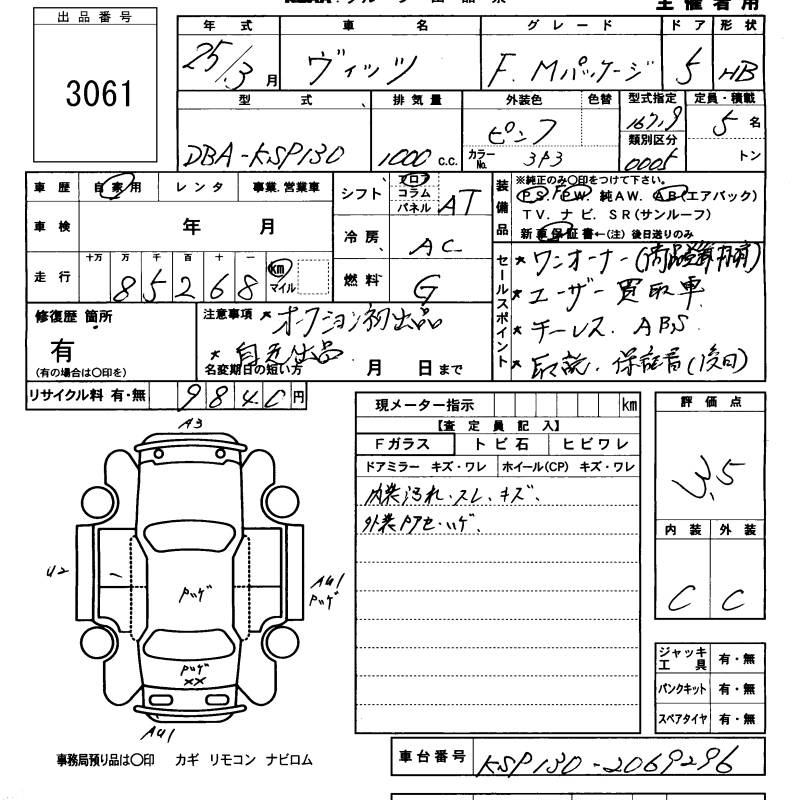 主催者用
出品番号
3061
年式 車名 グレード ドア 形状
25/3月 ヴィッツ F. Mパッケージ 5 HB
型式 排気量 外装色 色替 型式指定 定員・積載
DBA-KSP130 1000 C.C. ピンク カラーNo. 3P3 16719 類別区分 0005 5名 トン
車歴 自家用 レンタ 事業.営業車
車検 年 月
走行 十万 万 千 百 十 一
85268 km マイル
シフト フロア コラム パネル AT
冷房 AC
燃料 G
装備品 ※純正のみ〇印をつけて下さい。
PS. PW. 純AW. AB(エアバック)
TV. ナビ. SR(サンルーフ)
新車保証書←(注)後日送りのみ
セールスポイント
★ ワンオーナー
★ ユーザー買取車
★ チーレス. ABS
★ 取説. 保証書(後日)
修復歴 箇所
有
(有の場合は〇印を)
注意事項 ★ オークション初出品
★ 自社出品
名変期日の短い方 月 日まで
リサイクル料 有・無 984C円
現メーター指示 km
【査定員記入】
Fガラス トビ石 ヒビワレ
ドアミラー キズ・ワレ ホイール(CP) キズ・ワレ
内装汚れ.スレ.キズ.
外装Pアセ.ハゲ.
評価点
3.5
内装 外装
C C
A3
U2
Pハゲ
AU1
Pハゲ
Pハゲ
XX
AU1
ジャッキ工具 有・無
パンクキット 有・無
スペアタイヤ 有・無
事務局預り品は〇印 カギ リモコン ナビロム
車台番号 KSP130-2069296